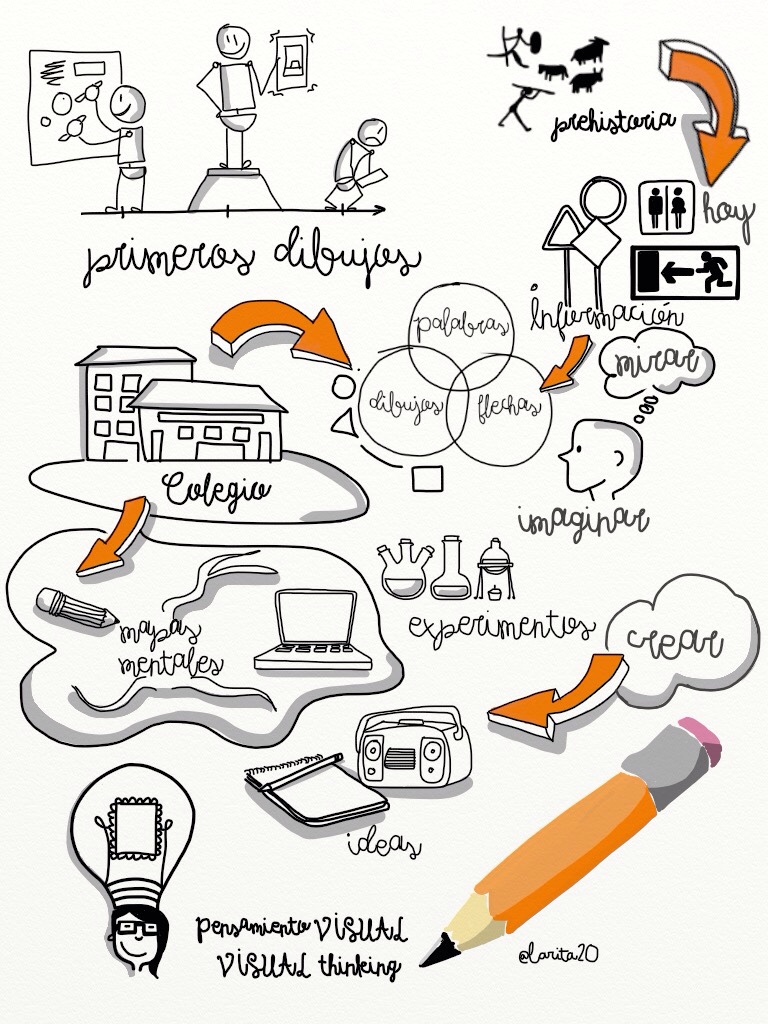 prehistoria
hoy
primeros dibujos
Información
palabras
mirar
dibujos
flechas
Colegio
imaginar
mapas
mentales
experimentos
crear
ideas
pensamiento VISUAL
VISUAL thinking
@larita20